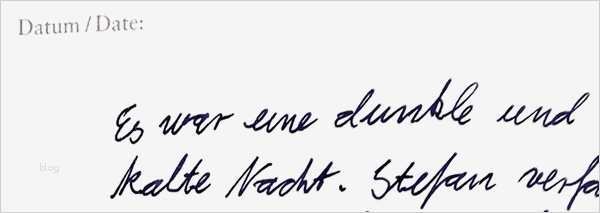 Datum / Date:
Es war eine dunkle und
blog
kalte Nacht. Stefan verfa